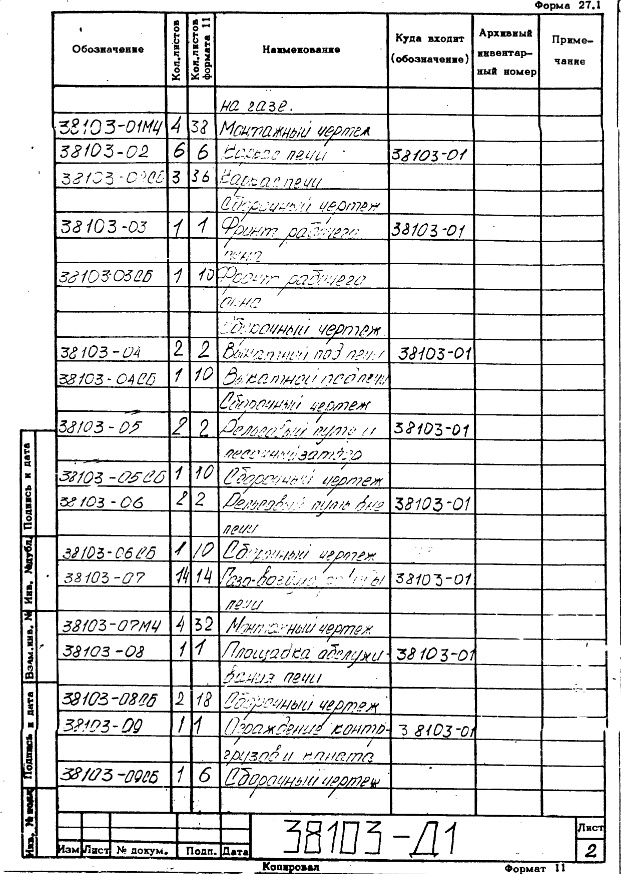 Форма 27.1
Обозначение Кол.листов Кол.листов формата 11 Наименование Куда входит (обозначение) Архивный инвентар- ный номер Приме- чание
на газе.
38103-01МЧ 4 38 Монтажный чертеж
38103-02 6 6 Каркас печи 38103-01
38103-02СБ 3 36 Каркас печи
Сборочный чертеж
38103-03 1 1 Фронт рабочего 38103-01
окна
38103-03СБ 1 10 Фронт рабочего
окна
Сборочный чертеж
38103-04 2 2 Выкатной под печи 38103-01
38103-04СБ 1 10 Выкатной под печи
Сборочный чертеж
38103-05 2 2 Рельсовый путь и 38103-01
песочный затвор
38103-05СБ 1 10 Сборочный чертеж
38103-06 2 2 Рельсовый путь вне 38103-01
печи
38103-06СБ 1 10 Сборочный чертеж
38103-07 14 14 38103-01
печи
38103-07МЧ 4 32 Монтажный чертеж
38103-08 1 1 Площадка обслужи- 38103-01
вания печи
38103-08СБ 2 18 Сборочный чертеж
38103-09 1 1 Ограждение контр- 38103-01
грузов и каната
38103-09СБ 1 6 Сборочный чертеж
Подпись и дата
Инв. №дубл.
Взам.инв. №
Подпись и дата
Инв. №подл
38103-Д1
Лист
2
Изм Лист № докум. Подп. Дата
Копировал Формат 11